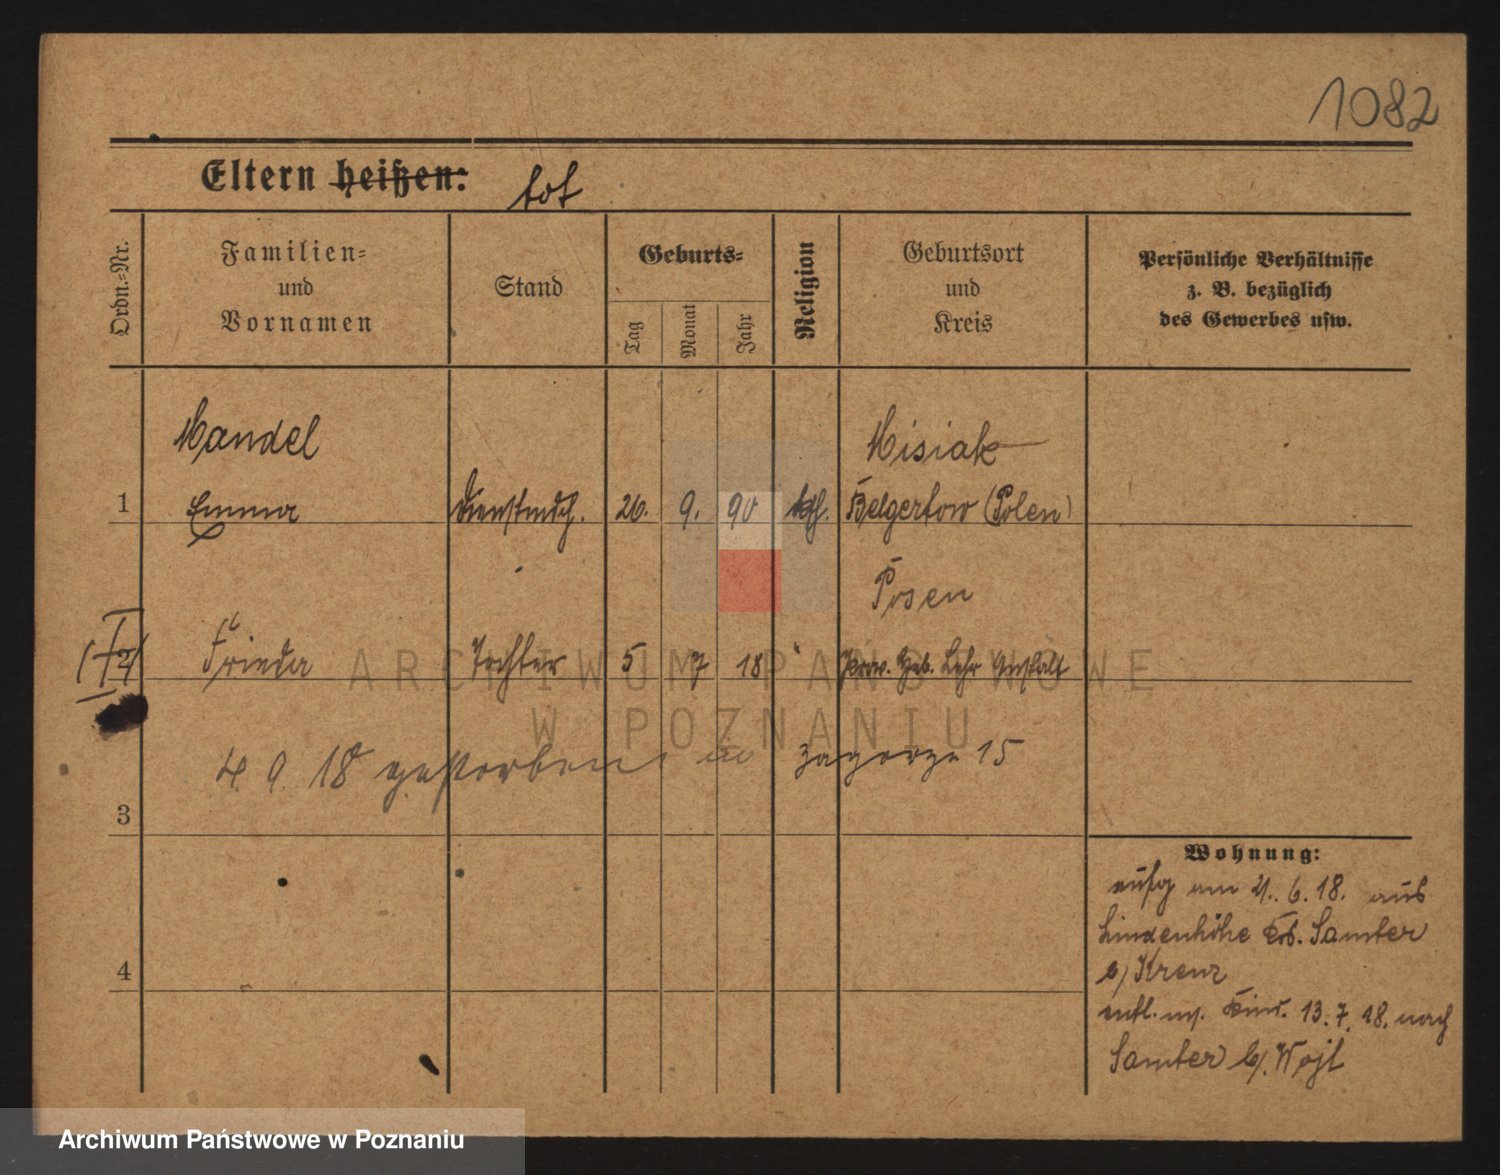 1082
Eltern heißen: tot
Ordn.-Nr.
Familien-
und
Vornamen
Stand
Geburts-
Tag
Monat
Jahr
Religion
Geburtsort
und
Kreis
Persönliche Verhältnisse
z. B. bezüglich
des Gewerbes usw.
Mandel
Misiak
1 Emma Dienstmdch. 26. 9. 90 kth. Belgertow (Polen)
Posen
Frieda Tochter 5 7 18 Prov. Heb. Lehr Anstalt
ARCHIWUM PAŃSTWOWE
W POZNANIU
4. 9. 18 gestorben in Zagorze 15
3
Wohnung:
aufg am 21. 6. 18. aus
Lindenhöhe Krs. Samter
b/ Kreuz
entl. m. Kind. 13. 7. 18. nach
Samter b/. Wojt
4
Archiwum Państwowe w Poznaniu